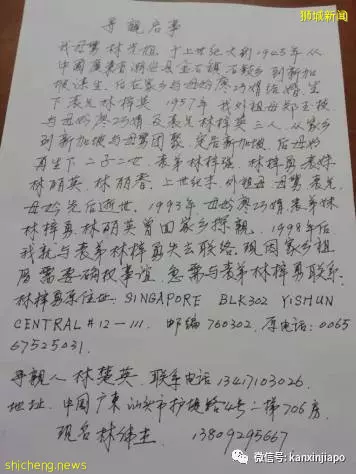 狮城新闻
寻亲启事
我母舅林光祖,于上世纪大约1945年从
中国广东省潮安县宝石镇石鼓乡到新加
坡谋生,后在家乡与母妗廖巧婧结婚,生
下表兄林梓英,1957年我外祖母郑玉枝
与母妗廖巧婧及表兄林梓英三人,从家乡
到新加坡与母舅团聚,定居新加坡,后母妗
再生下二子二女,表弟林梓强、林梓勇,表妹
林丽英、林丽香,上世纪末,外祖母、母舅、表兄
母妗先后逝世,1993年母妗廖巧婧表弟妹
林梓勇、林丽英曾回家乡探亲,1998年后
我就与表弟林梓勇失去联络,现因家乡祖
屋需要确权事谊,急需与表弟林梓勇联系.
林梓勇原住址: SINGAPORE BLK302 YISHUN
CENTRAL #12-111. 邮编 760302, 原电话:0065
67525031.
寻亲人 林楚英,联系电话 13417103026
地址.中国广东汕头市护堤路4号二幢706房
现名林伟生 13809295667
shicheng.news
微信号: kanxinjiapo